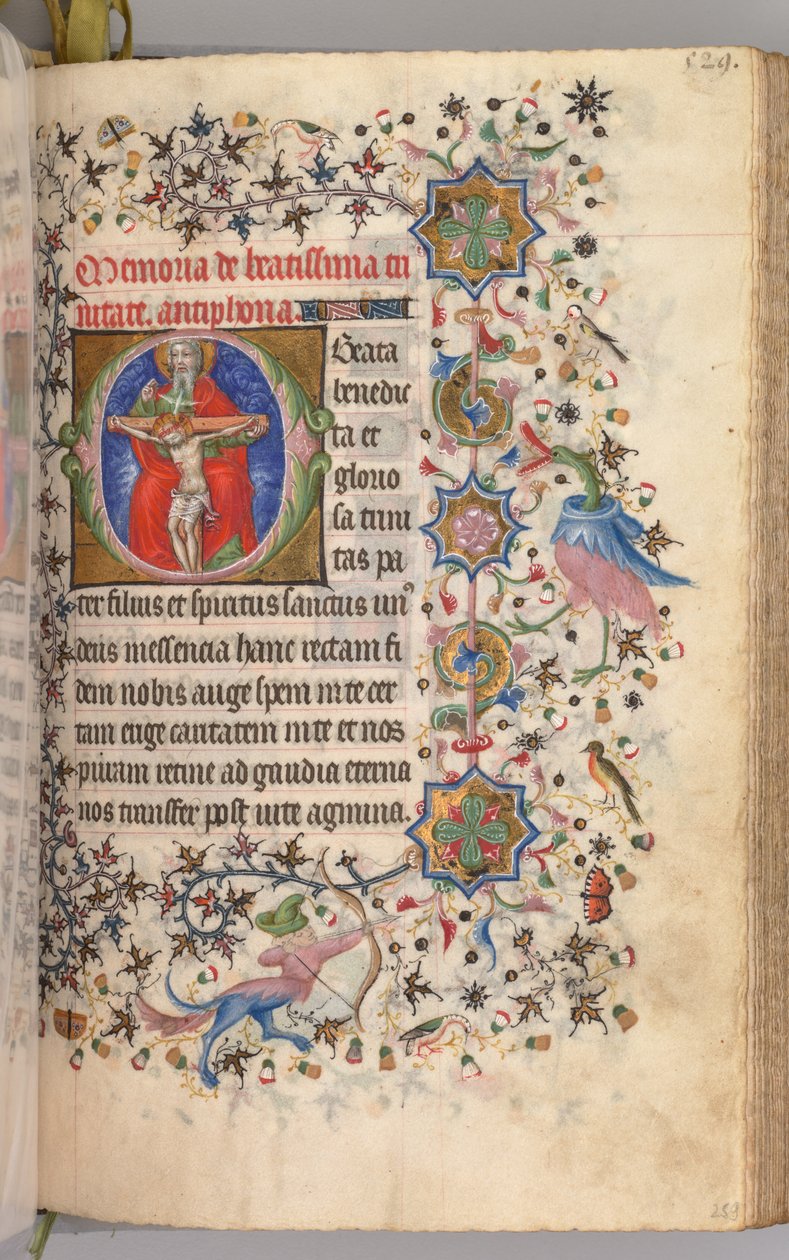 529.
Memoria de beatissima tri
nitate. antiphona.
Beata
benedic
ta et
glorio
sa trini
tas pa
ter filius et spiritus sanctus un⁹
deus messencia hanc rectam fi
dem nobis auge spem in te cer
tam euge caritatem in te et nos
puram retine ad gaudia eterna
nos transfer post uite agmina.
259